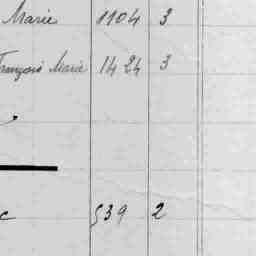 Marie 1104 3
François Marie 1424 3
c 539 2